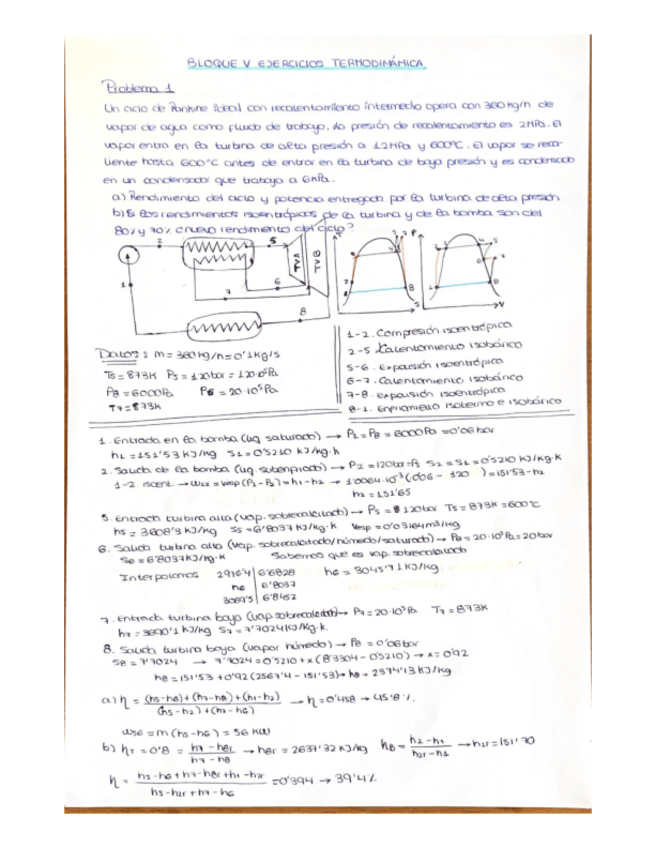 BLOQUE V EJERCICIOS TERMODINÁMICA
Problema 1
Un ciclo de Rankine ideal con recalentamiento intermedio opera con 360kg/h de
vapor de agua como fluido de trabajo. La presión de recalentamiento es 2MPa. El
vapor entra en la turbina de alta presión a 12MPa y 600°C. El vapor se reca-
lienta hasta 600°C antes de entrar en la turbina de baja presión y es condensado
en un condensador que trabaja a 6kPa.
a) Rendimiento del ciclo y potencia entregada por la turbina de alta presión
b) Si los rendimientos isoentrópicos de la turbina y de la bomba son del
80% y 70% ¿nuevo rendimiento del ciclo?
2 5 TVA TVB P P
1 7 6 8 S V
Datos: m = 360kg/h = 0'1kg/s
T5 = 873K P5 = 120bar = 120·10⁵Pa
P8 = 6000Pa P6 = 20·10⁵Pa
T7 = 873K
1-2. Compresión isoentrópica
2-5. Calentamiento isobárico
5-6. Expansión isoentrópica
6-7. Calentamiento isobárico
7-8. expansión isoentrópica
8-1. Enfriamiento isotermo e isobárico
1. Entrada en la bomba (liq saturado) → P1 = P8 = 6000Pa = 0'06bar
h1 = 151'53 kJ/kg S1 = 0'5210 kJ/kg·K
2. Salida de la bomba (liq subenfriado) → P2 = 120bar = P5 S2 = S1 = 0'5210 kJ/kg·K
1-2. isent. → W12 = vesp (P1-P2) = h1-h2 → 1'0064·10⁻³(006 - 120 ) = 151'53-h2
h2 = 151'65
5. Entrada turbina alta (vap. sobrecalentado) → P5 = 120bar T5 = 873K = 600°C
h5 = 3608'3 kJ/kg S5 = 6'8037 kJ/kg·K Vesp = 0'03164m³/kg
6. Salida turbina alta (vap. sobrecalentado/húmedo/saturado) → P6 = 20·10⁵Pa = 20bar
S6 = 6'8037 kJ/kg·K Sabemos que es vap. sobrecalentado
Interpolamos 2916'4 6'6828 h6 = 3045'71 kJ/kg
h6 6'8037
3069'5 6'8452
7. Entrada turbina baja (vap. sobrecalentado) → P7 = 20·10⁵Pa T7 = 873K
h7 = 3690'1 kJ/kg S7 = 7'7024 kJ/kg·K.
8. Salida turbina baja (vapor húmedo) → P8 = 0'06bar
S8 = 7'7024 → 7'7024 = 0'5210 + x(8'3304 - 0'5210) → x = 0'92
h8 = 151'53 + 0'92(2567'4 - 151'53) → h8 = 2374'13 kJ/kg
a) η = (h5-h6)+(h7-h8)+(h1-h2) / (h5-h2)+(h7-h6) → η = 0'458 → 45'8%.
W56 = m(h5-h6) = 56 kW
b) ηT = 0'8 = h7-h8r / h7-h8 → h8r = 2637'32 kJ/kg ηB = h2-h1 / h2r-h1 → h2r = 151'70
η = h5-h6+h7-h8r+h1-h2r / h5-h2r+h7-h6 = 0'394 → 39'4%